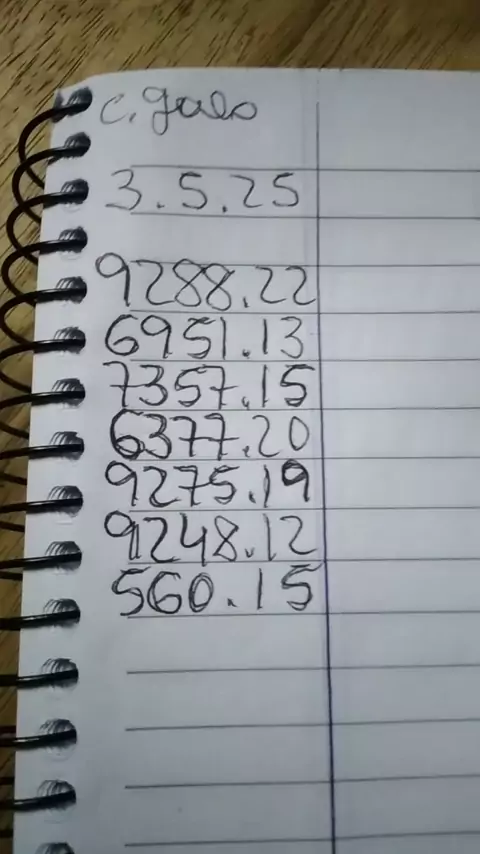 C. galo
3.5.25
9288.22
6951.13
7357.15
6377.20
9275.19
9248.12
560.15